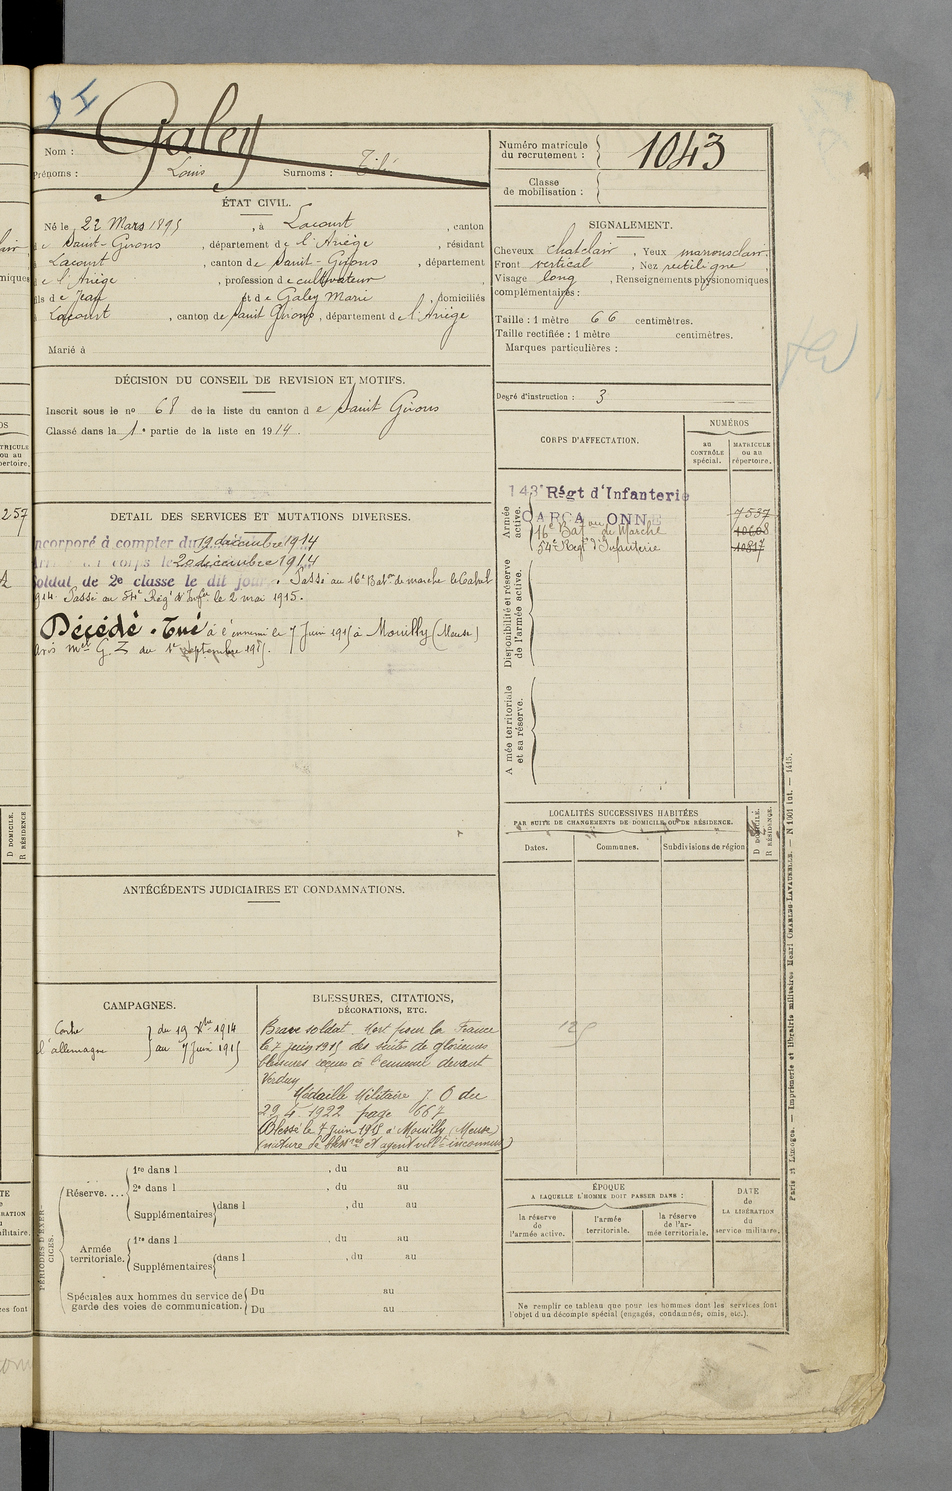 Galey
Nom :
Prénoms : Louis Surnoms :
Numéro matricule
du recrutement : 1043
Classe
de mobilisation :
ÉTAT CIVIL.
Né le 22 Mars 1895, à Lacourt, canton
de Saint-Girons, département de l'Ariège, résidant
à Lacourt, canton de Saint-Girons, département
de l'Ariège, profession de cultivateur
fils de Jean et de Galey Marie, domiciliés
à Lacourt, canton de Saint Girons, département de l'Ariège
Marié à
SIGNALEMENT.
Cheveux chatclair, Yeux
Front vertical, Nez rectiligne,
Visage long, Renseignements physionomiques
complémentaires :
Taille : 1 mètre 66 centimètres.
Taille rectifiée : 1 mètre centimètres.
Marques particulières :
DÉCISION DU CONSEIL DE REVISION ET MOTIFS.
Inscrit sous le no 68 de la liste du canton de Saint Girons
Classé dans la 1e partie de la liste en 1914.
Degré d'instruction : 3
CORPS D'AFFECTATION.
NUMÉROS
au
CONTRÔLE
spécial.
MATRICULE
ou au
répertoire.
Armée
active.
143e Régt d'Infanterie
CARCA ONNE 7537
16e Baton de Marche
54e Régt d'Infanterie
Disponibilité et réserve
de l'armée active.
A mée territoriale
et sa réserve.
DETAIL DES SERVICES ET MUTATIONS DIVERSES.
Incorporé à compter du 19 décembre 1914
Arrivé au corps le 20 décembre 1914
Soldat de 2e classe le dit jour. Passé au 16e Baton de marche le
Passé au 54e Régt d'Infie le 2 mai 1915.
Décédé. Tué à l'ennemi le 7 Juin 1915 à Mouilly (Meuse)
avis mel G. Z du 1er septembre 1915.
LOCALITÉS SUCCESSIVES HABITÉES
PAR SUITE DE CHANGEMENTS DE DOMICILE OU DE RÉSIDENCE.
Dates.
Communes.
Subdivisions de région
D DOMICILE.
R RÉSIDENCE.
125
ANTÉCÉDENTS JUDICIAIRES ET CONDAMNATIONS.
CAMPAGNES.
Contre } du 19 Xbre 1914
l'allemagne } au 7 Juin 1915
BLESSURES, CITATIONS,
DÉCORATIONS, ETC.
Brave soldat. Mort pour la France
le 7 juin 1915 des suites de glorieuses
blessures reçues à l'ennemi devant
Verdun
Médaille Militaire J. O du
29.4.1922 page 667
Blessé le 7 Juin 1915 à Mouilly (Meuse)
(nature de bless res et agent vult inconnus)
PÉRIODES D'EXER-
CICES.
Réserve....
1re dans l , du au
2e dans l , du au
Supplémentaires dans l , du au
Armée
territoriale.
1re dans l , du au
Supplémentaires dans l , du au
Spéciales aux hommes du service de
garde des voies de communication.
Du au
Du au
ÉPOQUE
A LAQUELLE L'HOMME DOIT PASSER DANS :
la réserve
de
l'armée active.
l'armée
territoriale.
la réserve
de l'ar-
mée territoriale.
DATE
de
LA LIBÉRATION
du
service militaire.
Ne remplir ce tableau que pour les hommes dont les services font
l'objet d'un décompte spécial (engagés, condamnés, omis, etc.).
Paris et Limoges. — Imprimerie et librairie militaires Henri CHARLES-LAVAUZELLE. — N 1501 int. — 1415.
257